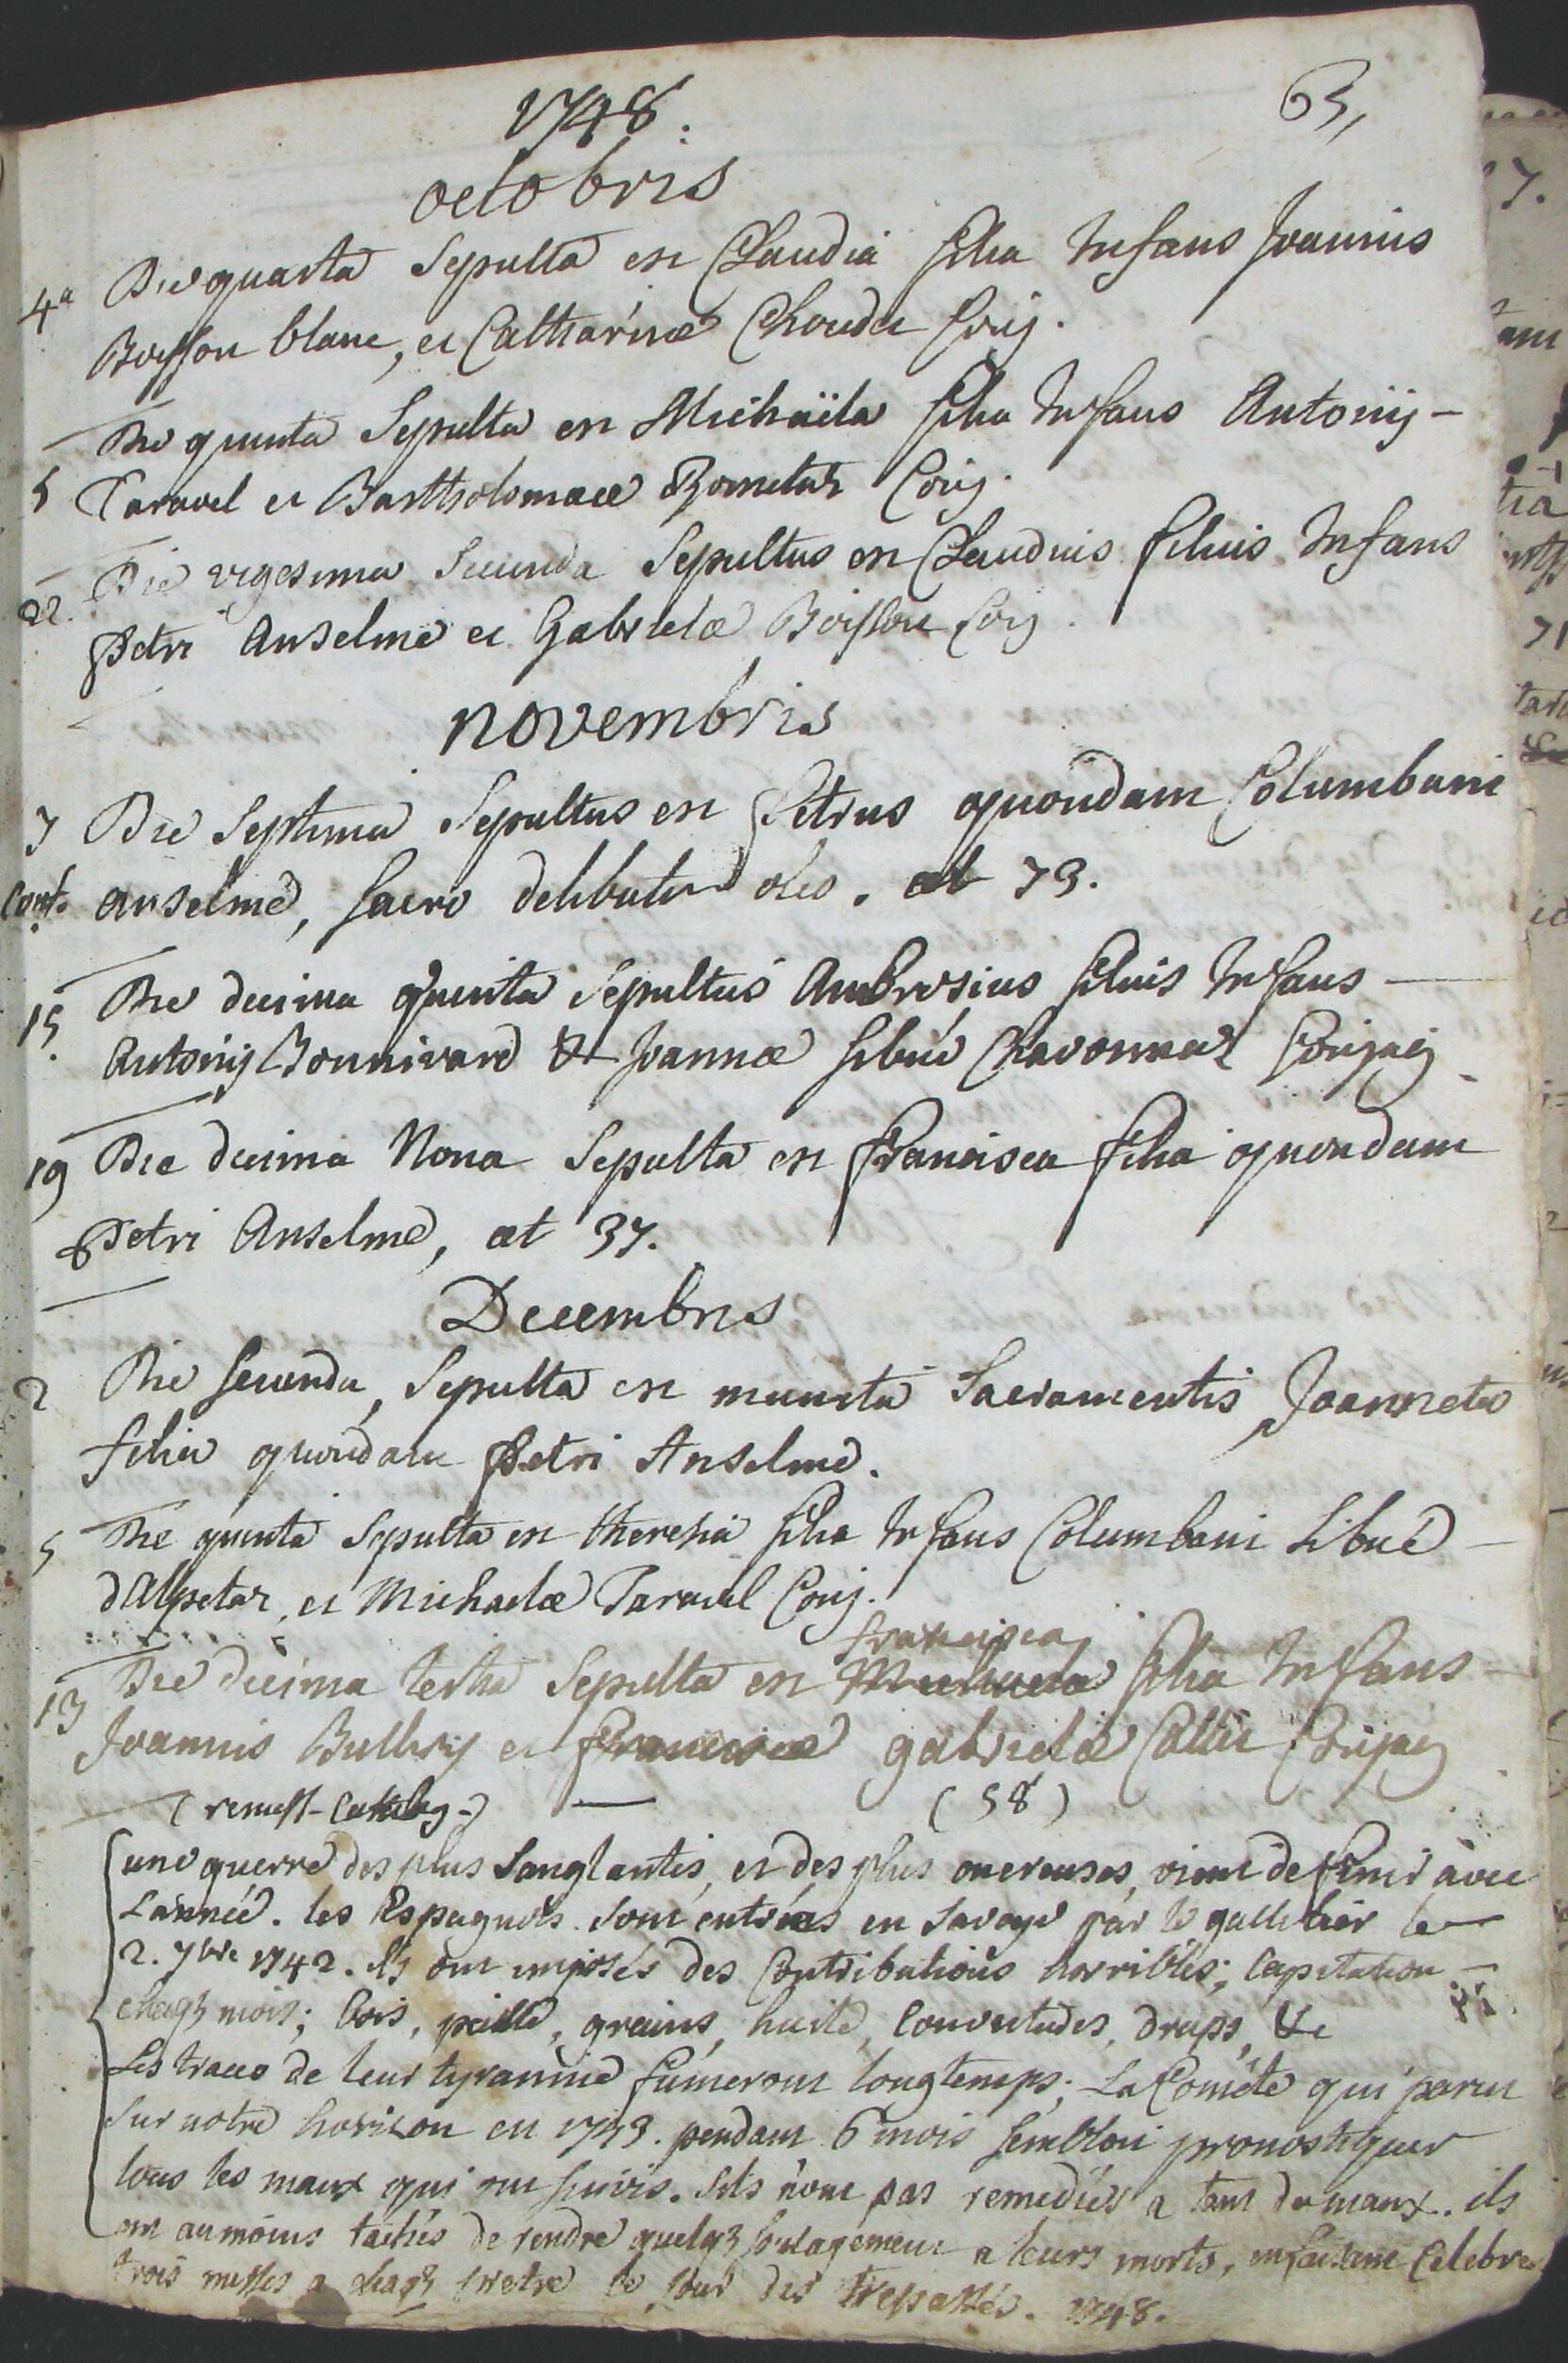 1748.
63,
octobris
4a Die quarta Sepulta est Claudia filia Infans Joannis
Boisson blanc, et Catharinæ Choudet Conj.
5 Die quinta Sepulta est Michaëla filia Infans Antonij -
Taravel et Bartholomææ Bometar Conj.
22. Die vigesima Secunda Sepultus est Claudius filius Infans
Petri Anselme et Gabrielæ Boisson Conj.
novembris
7 Die Septima Sepultus est Petrus quondam Columbani
Conf. anselme, sacro delibutus oleo. æt 73.
15. Die decima quinta Sepultus Ambrosius filius Infans -
Antonij Bonnivard & Joannæ sibué Chavonnaz Conjug
19 Die decima Nona Sepulta est Francisca filia quondam
Petri Anselme, æt 37.
Decembris
2 Die secunda, Sepulta est munita Sacramentis Joanneta
filia quondam Petri Anselme.
5 Die quinta Sepulta est theresia filia Infans Columbani Sibué -
dAlpetaz, et Michaelæ Taravel Conj.
francisca
13 Die decima tertia Sepulta est Michaela filia Infans -
Joannis Bulliy et Franciscæ gabrielæ Collet Conjug
(58)
une guerre des plus Sanglantes, et des plus onereuses, vient de finir avec
L'année. les Espagnols sont entrées en Savoye par le gallibier le
2. 7bre 1742. ils ont imposés des Contributions horribles; Capitation -
chaq3 mois; bois, paille, grains, huile, Couvertudes, draps, &c
Les traces de leur tyrannie fumeront longtemps; La Comete qui parut
sur notre horison en 1743. pendant 6 mois sembloit pronostiquer
tous les maux qui ont suivis. sils n'ont pas remediés a tant de maux. ils
ont aumoins tachés de rendre quelq3 soulagement a leurs morts, en faisant Celebrer
trois messes a chaq3 pretre le jour des trepassés. 1748.